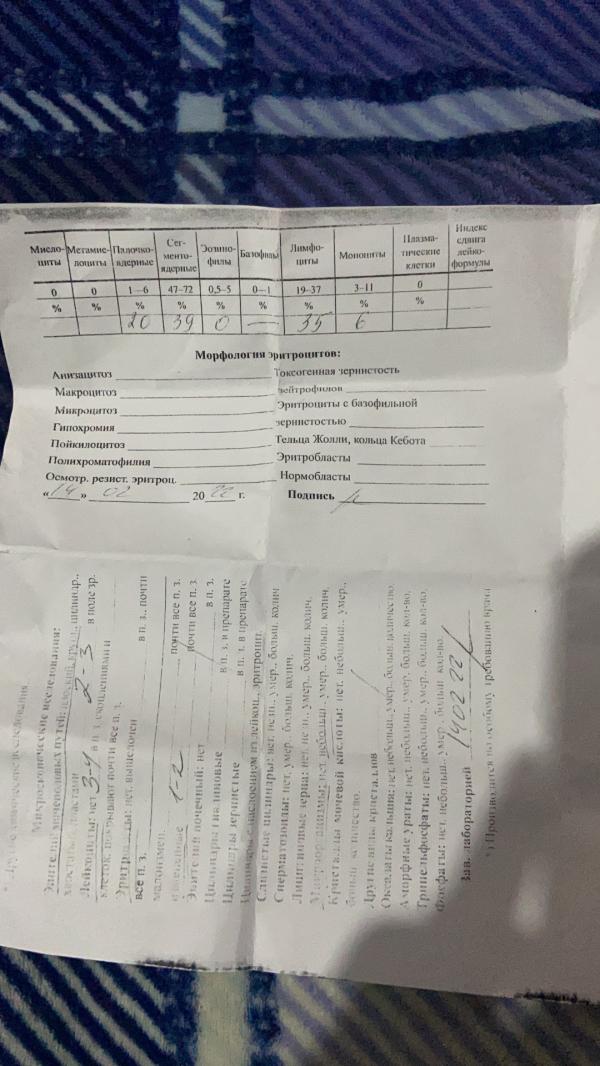 Миело-
циты
Метамие-
лоциты
Палочко-
ядерные
Сег-
менто-
ядерные
Эозино-
филы
Базофилы
Лимфо-
циты
Моноциты
Плазма-
тические
клетки
Индекс
сдвига
лейко-
формулы
0 0 1–6 47–72 0,5–5 0–1 19–37 3–11 0
% % % % % % % % %
20 39 0 — 35 6
Морфология эритроцитов:
Анизацитоз Токсогенная зернистость
Макроцитоз нейтрофилов
Микроцитоз Эритроциты с базофильной
Гипохромия зернистостью
Пойкилоцитоз Тельца Жолли, кольца Кебота
Полихроматофилия Эритробласты
Осмотр. резист. эритроц. Нормобласты
«14» 02 2022 г. Подпись
Микроскопические исследования:
Эпителий мочеполовых путей: плоский, кругл., цилиндр.,
2-3 в поле зр.
Лейкоциты: нет 3-4 в п. з., скоплениями и
клеток, покрывают почти все п. з.
Эритроциты: нет, вышелочен в п. з., почти
все п. з.
малоизмен. почти все п. з.
1-2 почти все п. з.
Эпителий почечный: нет в п. з.
Цилиндры гиалиновые в п. з. в препарате
Цилиндры зернистые в п. з. в препарате
Цилиндры с наслоением из лейкоц., эритроцит.
Слизистые цилиндры: нет, незн., умер., больш. колич
Сперматозоиды: нет, умер., больш. колич.
Липитничные зерна: нет, незн., умер., больш. колич.
нет, небольш., умер., больш. колич.
Кристаллы мочевой кислоты: нет, небольш., умер.,
больш. количество.
Другие виды кристаллов
Оксалаты кальция: нет, небольш., умер., больш. количество.
Аморфные ураты: нет, небольш., умер., больш. кол-во.
Трипельфосфаты: нет, небольш., умер., больш. кол-во.
Фосфаты: нет, небольш., умер., больш. кол-во.
Зав. лабораторией 140222
*) Производится по особому требованию врача